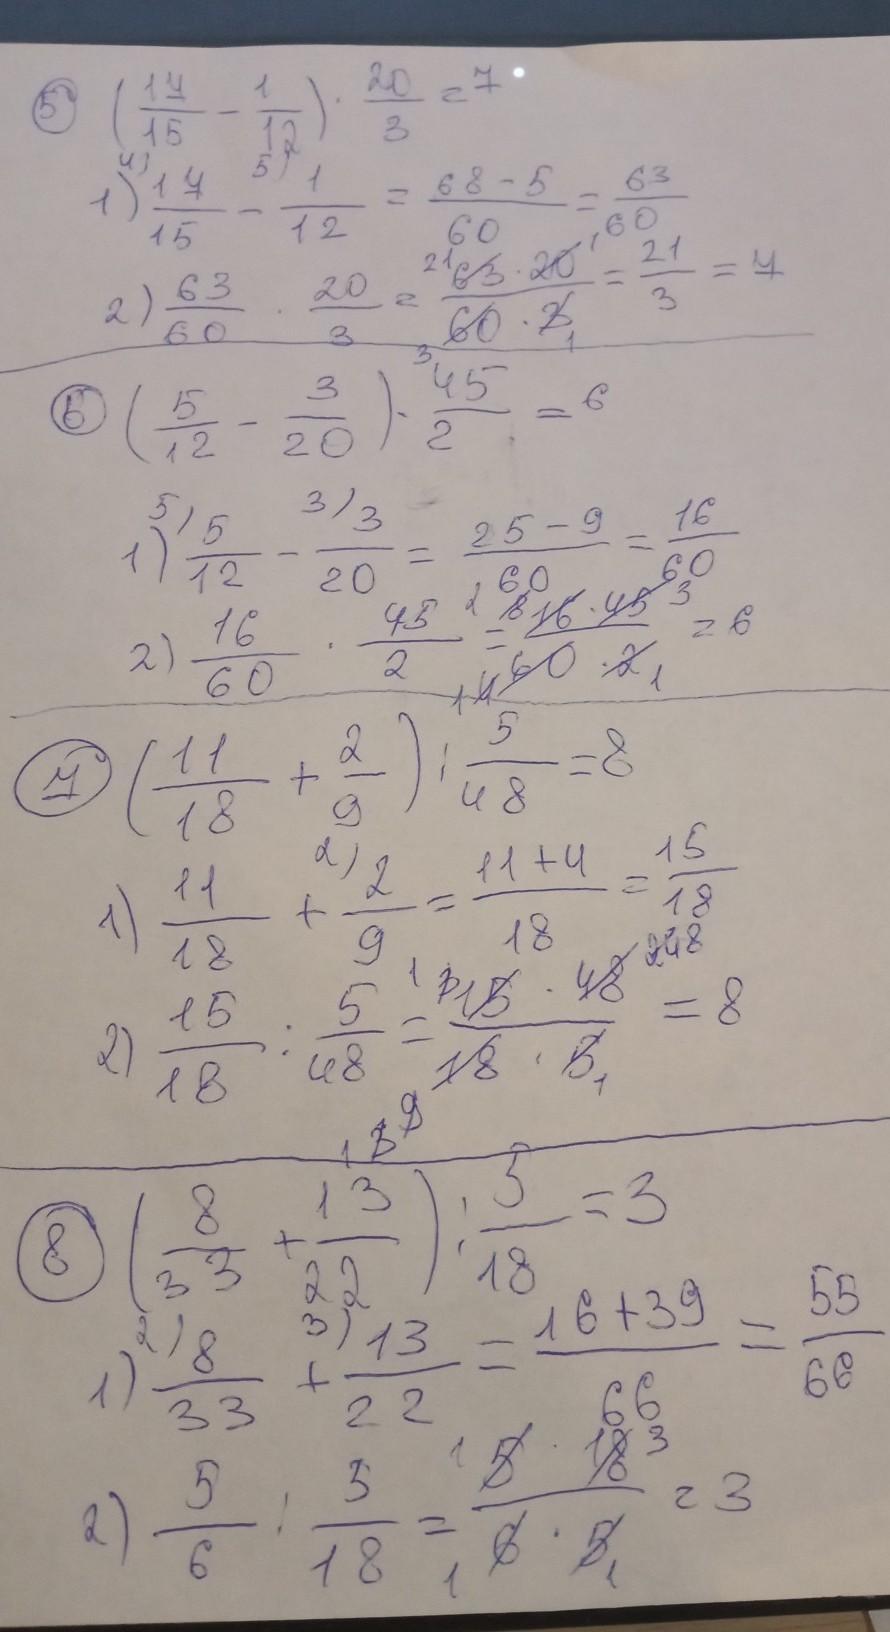 5 (17/15 - 1/12) · 20/3 = 7
1) 4) 17/15 - 5) 1/12 = 68-5/60 = 63/60
2) 63/60 · 20/3 = 21 63 · 20 1/60 · 3 1 = 21/3 = 7
6 (5/12 - 3/20) · 3 45/2 = 6
1) 5) 5/12 - 3) 3/20 = 25-9/60 = 16/60
2) 16/60 · 45/2 = 2 8 16 · 45 3/1 4 60 · 2 1 = 6
7 (11/18 + 2/9) : 5/48 = 8
1) 11/18 + 2) 2/9 = 11+4/18 = 15/18
2) 15/18 : 5/48 = 1 3 15 · 48/18 · 5 1 = 8
8 (8/33 + 13/22) : 5/18 = 3
1) 2) 8/33 + 3) 13/22 = 16+39/66 = 55/66
2) 5/6 : 5/18 = 1 5 · 18 3/1 6 · 5 1 = 3